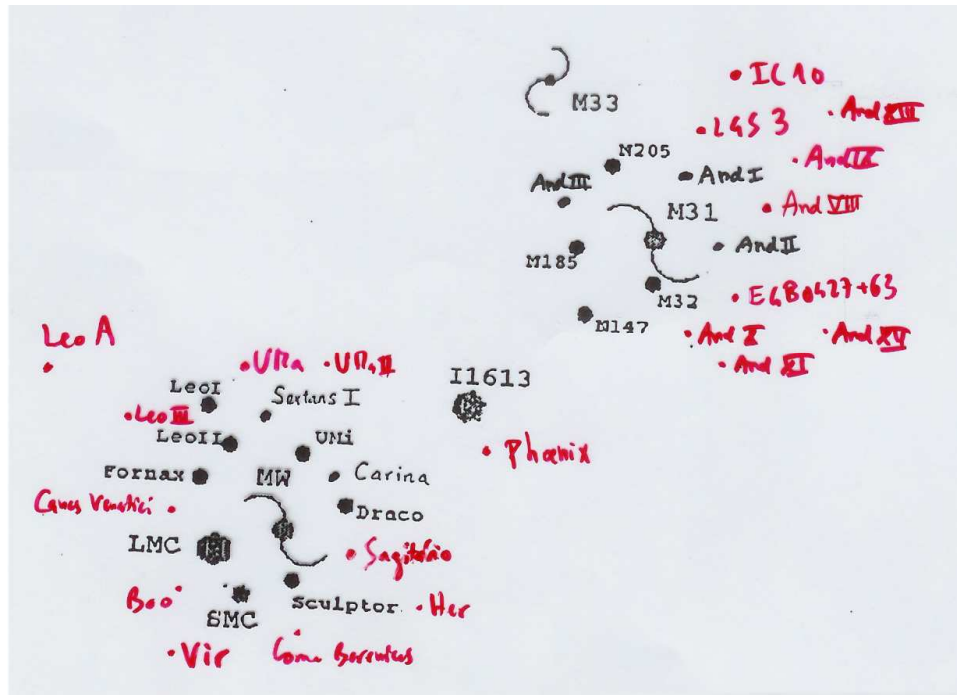 IC 10
M33
And XIII
LGS 3
N205
And IX
And III
And I
M31
And VIII
And II
M185
M32
EGB0427+63
N147
And X
And XV
And XI
Leo A
UMa
UMa II
I1613
LeoI
Sextans I
Leo IV
LeoII
UMi
Phœnix
Fornax
MW
Carina
Canes Venatici
Draco
LMC
Sagitário
Boo
Sculptor
Her
SMC
Vir
Coma Berenices